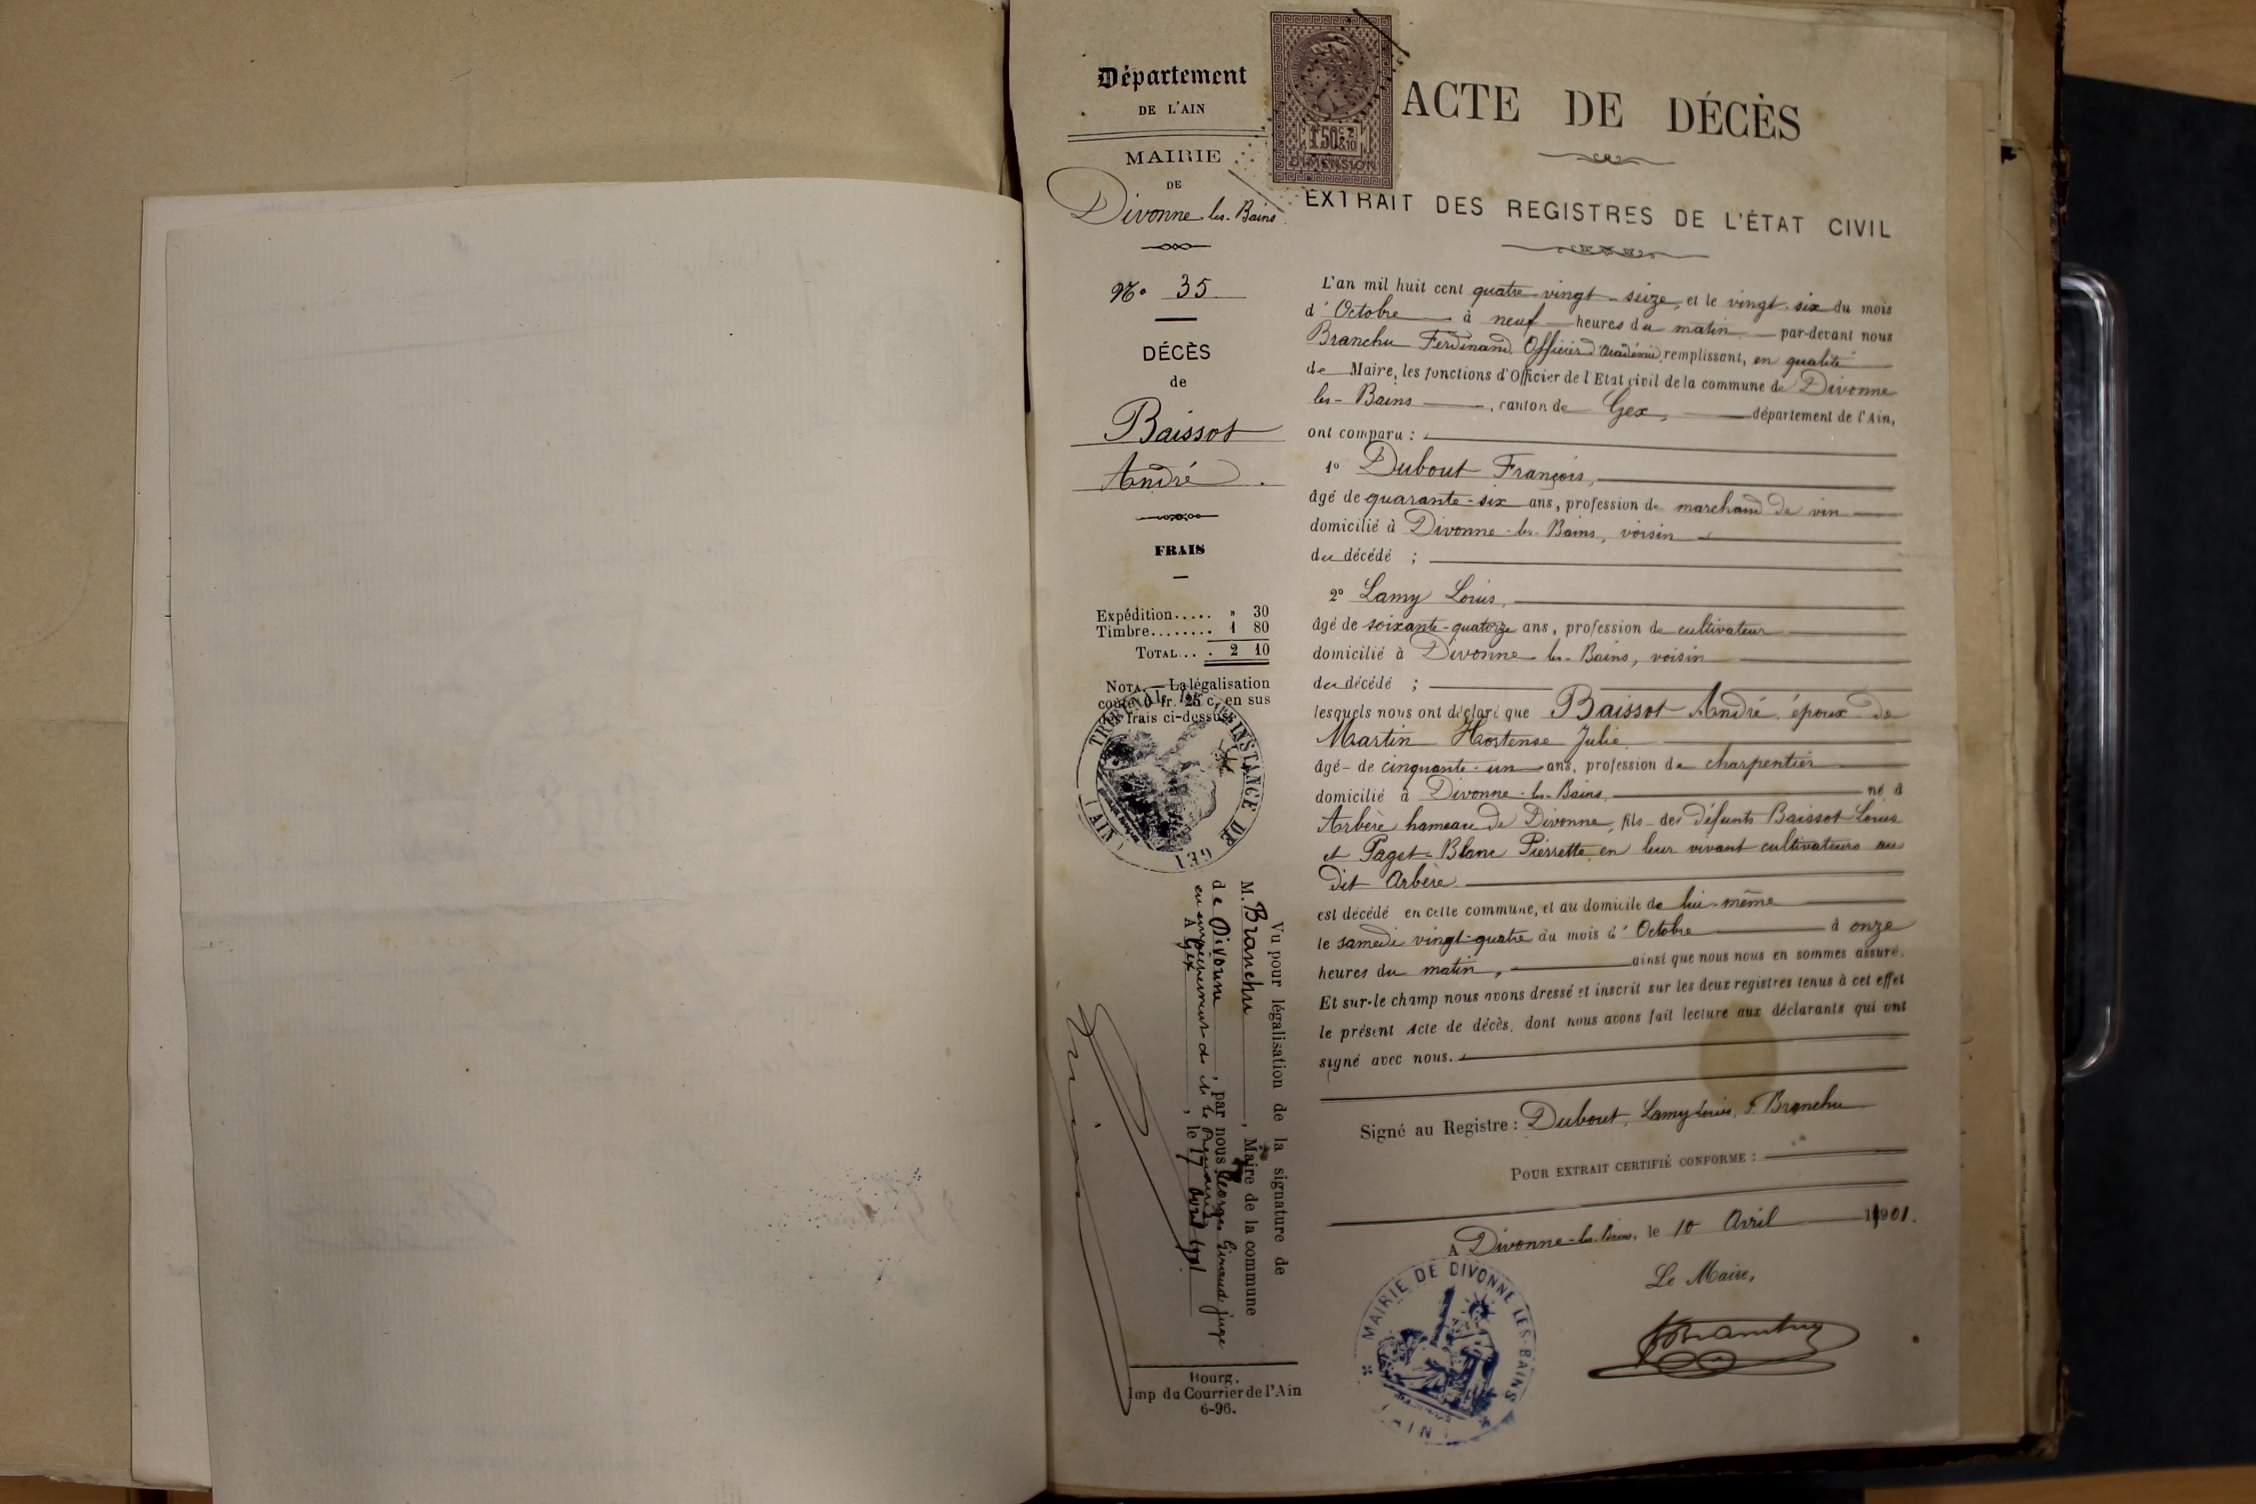 Département
DE L'AIN
MAIRIE
DE
Divonne-les-Bains
No 35
DÉCÈS
de
Baissot
André
FRAIS
Expédition..... » 30
Timbre........ 1 80
TOTAL... . 2 10
NOTA. — La légalisation
coûte 0 fr. 25 c. en sus
des frais ci-dessus
TRIBUNAL DE INSTANCE DE GEX
(AIN)
Vu pour légalisation de la signature de
M. Branchu, Maire de la commune
de Divonne, par nous Georges Giraud juge
en empêchement de M. le
A Gex, le 17 avril 1901
Bourg.
Imp du Courrier de l'Ain
6-96.
1 50 c 2/10
DIMENSION
ACTE DE DÉCÈS
EXTRAIT DES REGISTRES DE L'ÉTAT CIVIL
L'an mil huit cent quatre-vingt-seize, et le vingt-six du mois
d'Octobre à neuf heures du matin par-devant nous
Branchu Ferdinand, Officier d'Académie, remplissant, en qualité
de Maire, les fonctions d'Officier de l'Etat civil de la commune de Divonne
les-Bains, canton de Gex, département de l'Ain,
ont comparu :
1o Dubout François,
âgé de quarante-six ans, profession de marchand de vin
domicilié à Divonne-les-Bains, voisin
du décédé ;
2o Lamy Louis,
âgé de soixante-quatorze ans, profession de cultivateur
domicilié à Divonne-les-Bains, voisin
du décédé ;
lesquels nous ont déclaré que Baissot André, époux de
Martin Hortense Julie
âgé de cinquante-un ans, profession de charpentier
domicilié à Divonne-les-Bains, né à
Arbère hameau de Divonne, fils des défunts Baissot Louis
et Paget-Blanc Pierrette en leur vivant cultivateurs au
dit Arbère
est décédé en cette commune, et au domicile de lui-même
le samedi vingt-quatre du mois d'Octobre à onze
heures du matin, ainsi que nous nous en sommes assuré.
Et sur-le champ nous avons dressé et inscrit sur les deux registres tenus à cet effet
le présent acte de décès, dont nous avons fait lecture aux déclarants qui ont
signé avec nous.
Signé au Registre : Dubout, Lamy Louis, F. Branchu
POUR EXTRAIT CERTIFIÉ CONFORME :
A Divonne-les-Bains, le 10 Avril 1901.
Le Maire,
F Branchu
MAIRIE DE DIVONNE-LES-BAINS
(AIN)